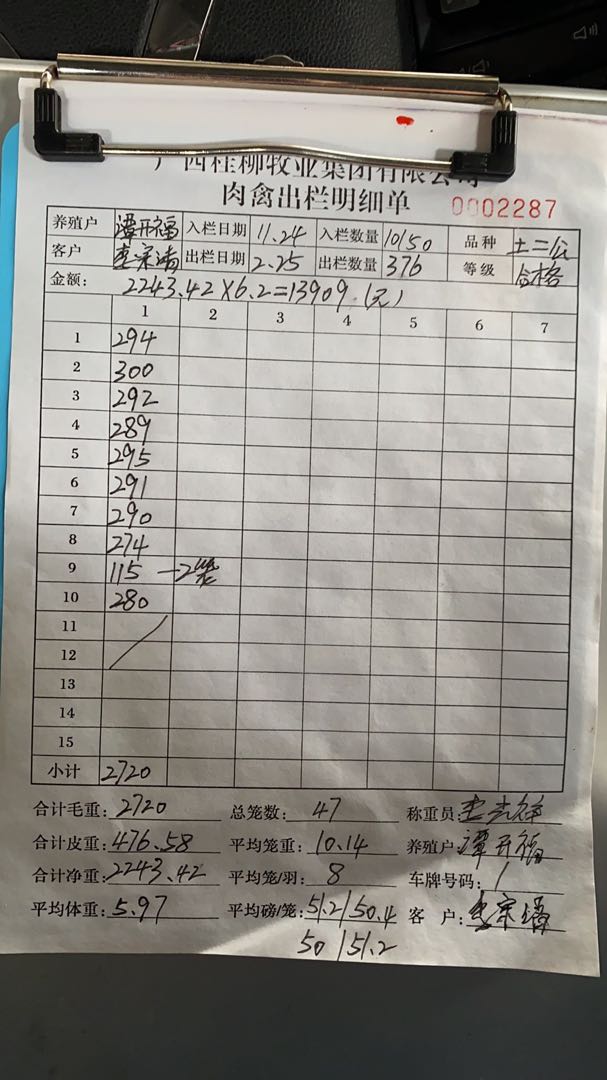 广西桂柳牧业集团有限公司
肉禽出栏明细单 0002287
养殖户 潭开福 入栏日期 11.24 入栏数量 10150 品种 土二公
客户 出栏日期 2.25 出栏数量 376 等级 合格
金额: 2243.42×6.2=13909.(元)
1 2 3 4 5 6 7
1 294
2 300
3 292
4 289
5 295
6 291
7 290
8 274
9 115 —2笼
10 280
11
12
13
14
15
小计 2720
合计毛重: 2720 总笼数: 47 称重员:
合计皮重: 476.58 平均笼重: 10.14 养殖户: 潭开福
合计净重: 2243.42 平均笼/羽: 8 车牌号码: /
平均体重: 5.97 平均磅/笼: 51.2/50.4 客 户:
50/51.2